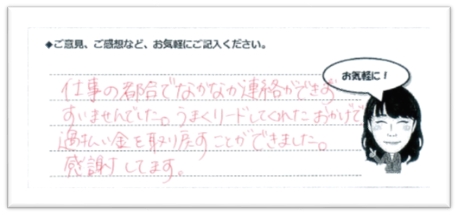 ◆ご意見、ご感想など、お気軽にご記入ください。
お気軽に！
仕事の都合でなかなか連絡ができず
すいませんでした。うまくリードしてくれたおかげで
過払い金を取り戻すことができました。
感謝してます。